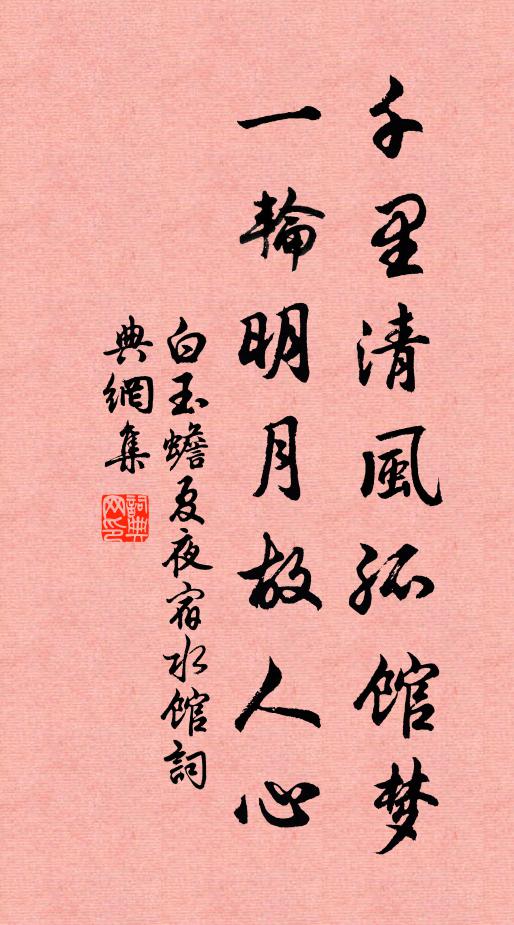 千里清風孤館梦
一輪明月故人心
白玉蟾夏夜宿水館詞
典網集
詞典
网印